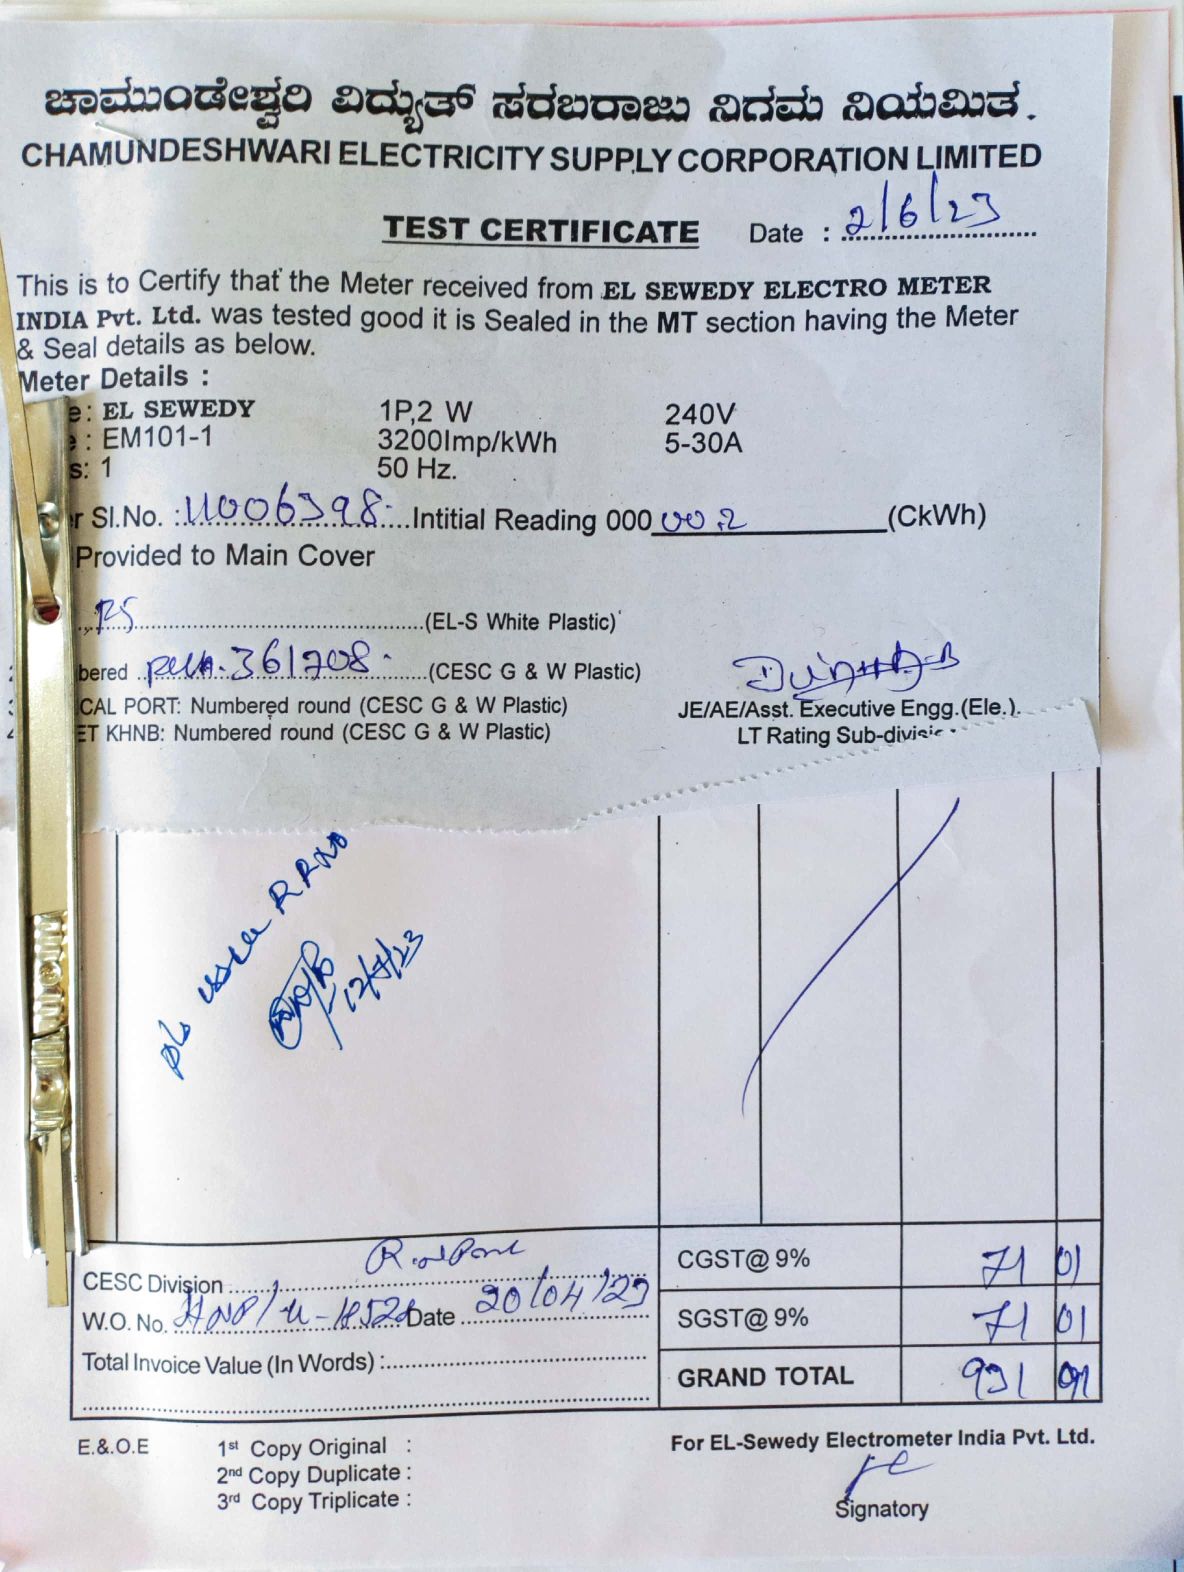 ಚಾಮುಂಡೇಶ್ವರಿ ವಿದ್ಯುತ್ ಸರಬರಾಜು ನಿಗಮ ನಿಯಮಿತ.
CHAMUNDESHWARI ELECTRICITY SUPPLY CORPORATION LIMITED
TEST CERTIFICATE Date : 2/6/23
This is to Certify that the Meter received from EL SEWEDY ELECTRO METER
INDIA Pvt. Ltd. was tested good it is Sealed in the MT section having the Meter
& Seal details as below.
Meter Details :
e: EL SEWEDY 1P,2 W 240V
: EM101-1 3200Imp/kWh 5-30A
s: 1 50 Hz.
r Sl.No. :11006398 Intitial Reading 000 00.2 (CkWh)
Provided to Main Cover
(EL-S White Plastic)
bered 361708 (CESC G & W Plastic)
CAL PORT: Numbered round (CESC G & W Plastic) JE/AE/Asst. Executive Engg.(Ele.).
ET KHNB: Numbered round (CESC G & W Plastic) LT Rating Sub-divisi
RRNo
12/7/23
CGST@ 9% 71 01
CESC Division
W.O. No. Date 20/04/23
SGST@ 9% 71 01
Total Invoice Value (In Words) :
GRAND TOTAL 931 01
E.&.O.E 1st Copy Original : For EL-Sewedy Electrometer India Pvt. Ltd.
2nd Copy Duplicate :
3rd Copy Triplicate : Signatory